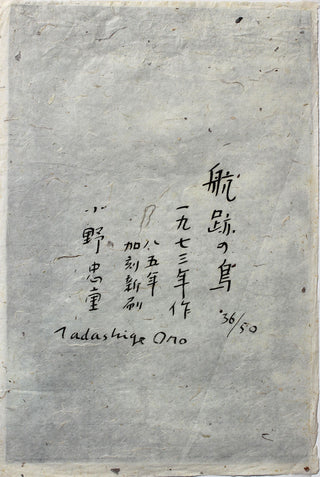 航跡の鳥
36/50
一九七三年作
八五年
加刻新刷
小野忠重
Tadashige Ono